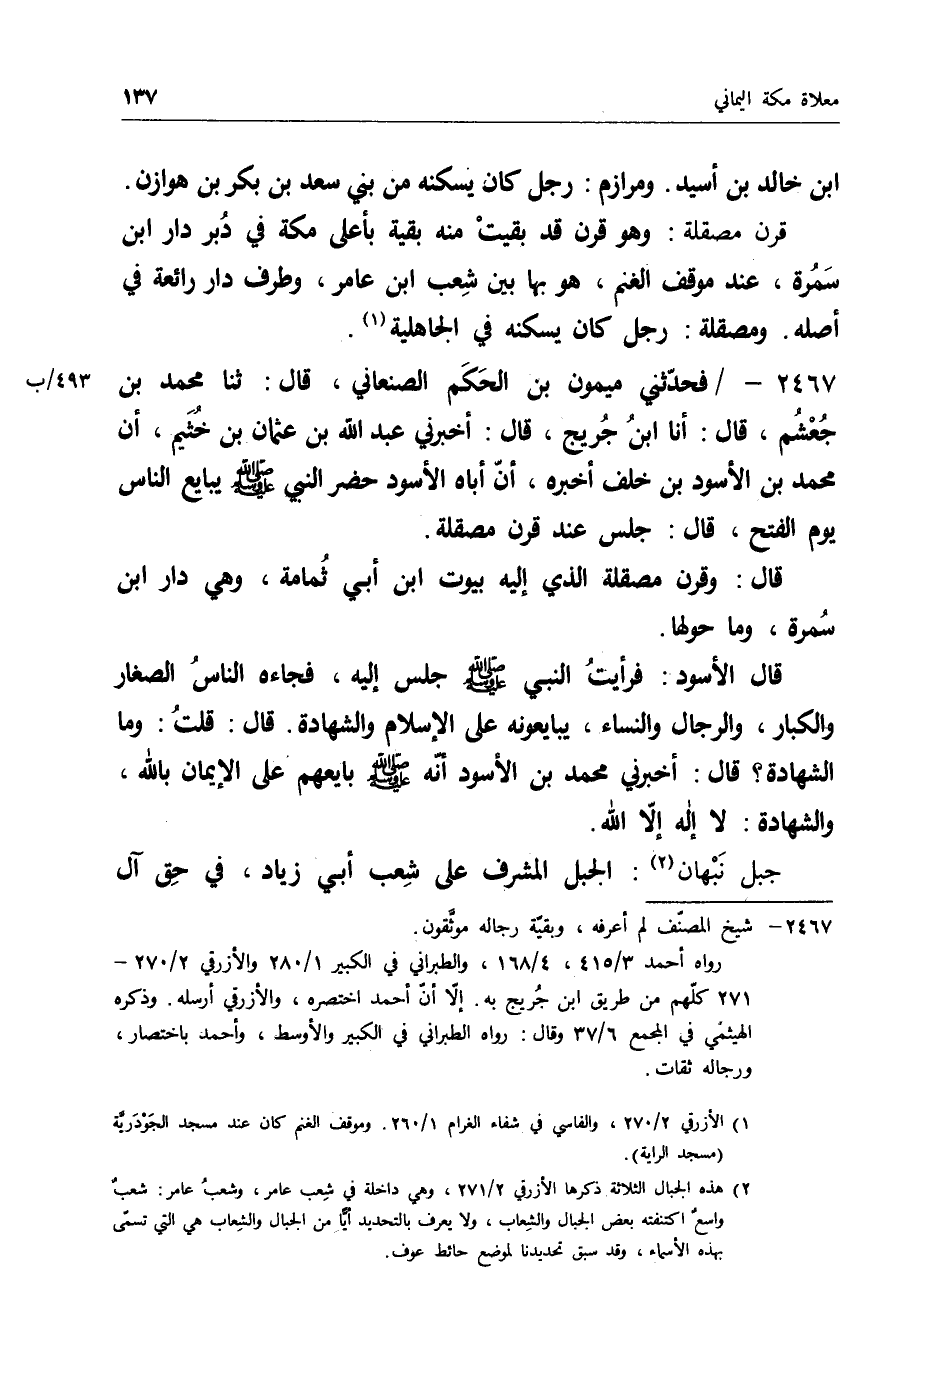 معلاة مكة اليماني ١٣٧
ابن خالد بن أسيد. ومرازم : رجل كان يسكنه من بني سعد بن بكر بن هوازن.
قرن مصقلة : وهو قرن قد بقيتْ منه بقية بأعلى مكة في دُبر دار ابن
سَمُرة ، عند موقف الغنم ، هو بها بين شِعب ابن عامر ، وطرف دار رائعة في
أصله. ومصقلة : رجل كان يسكنه في الجاهلية(١) .
٢٤٦٧ - /فحدّثني ميمون بن الحَكَم الصنعاني ، قال : ثنا محمد بن ٤٩٣/ب
جُعْشُم ، قال : أنا ابنُ جُريج ، قال : أخبرني عبد الله بن عثمان بن خُثَيم ، أن
محمد بن الأسود بن خلف أخبره ، أنّ أباه الأسود حضر النبي ﷺ يبايع الناس
يوم الفتح ، قال : جلس عند قرن مصقلة.
قال : وقرن مصقلة الذي إليه بيوت ابن أبي ثُمامة ، وهي دار ابن
سُمرة ، وما حولها.
قال الأسود : فرأيتُ النبي ﷺ جلس إليه ، فجاءه الناسُ الصغار
والكبار ، والرجال والنساء ، يبايعونه على الإسلام والشهادة. قال : قلتُ : وما
الشهادة؟ قال : أخبرني محمد بن الأسود أنّه ﷺ بايعهم على الإيمان بالله ،
والشهادة : لا إله إلّا الله.
جبل نَبْهان(٢) : الجبل المشرف على شِعب أبي زياد ، في حِق آل
٢٤٦٧- شيخ المصنّف لم أعرفه ، وبقيّة رجاله موثّقون.
رواه أحمد ٤١٥/٣ ، ١٦٨/٤ ، والطبراني في الكبير ٢٨٠/١ والأزرقي ٢٧٠/٢ -
٢٧١ كلّهم من طريق ابن جُريج به. إلّا أنّ أحمد اختصره ، والأزرقي أرسله. وذكره
الهيثمي في المجمع ٣٧/٦ وقال : رواه الطبراني في الكبير والأوسط ، وأحمد باختصار ،
ورجاله ثقات.
١) الأزرقي ٢٧٠/٢ ، والفاسي في شفاء الغرام ٢٦٠/١. وموقف الغنم كان عند مسجد الجَوْدَريَّة
(مسجد الراية).
٢) هذه الجبال الثلاثة ذكرها الأزرقي ٢٧١/٢ ، وهي داخلة في شِعب عامر ، وشعبُ عامر : شعبٌ
واسعٌ اكتنفته بعض الجبال والشِعاب ، ولا يعرف بالتحديد أيًّا من الجبال والشِعاب هي التي تسمّى
بهذه الأسماء ، وقد سبق تحديدنا لموضع حائط عوف.